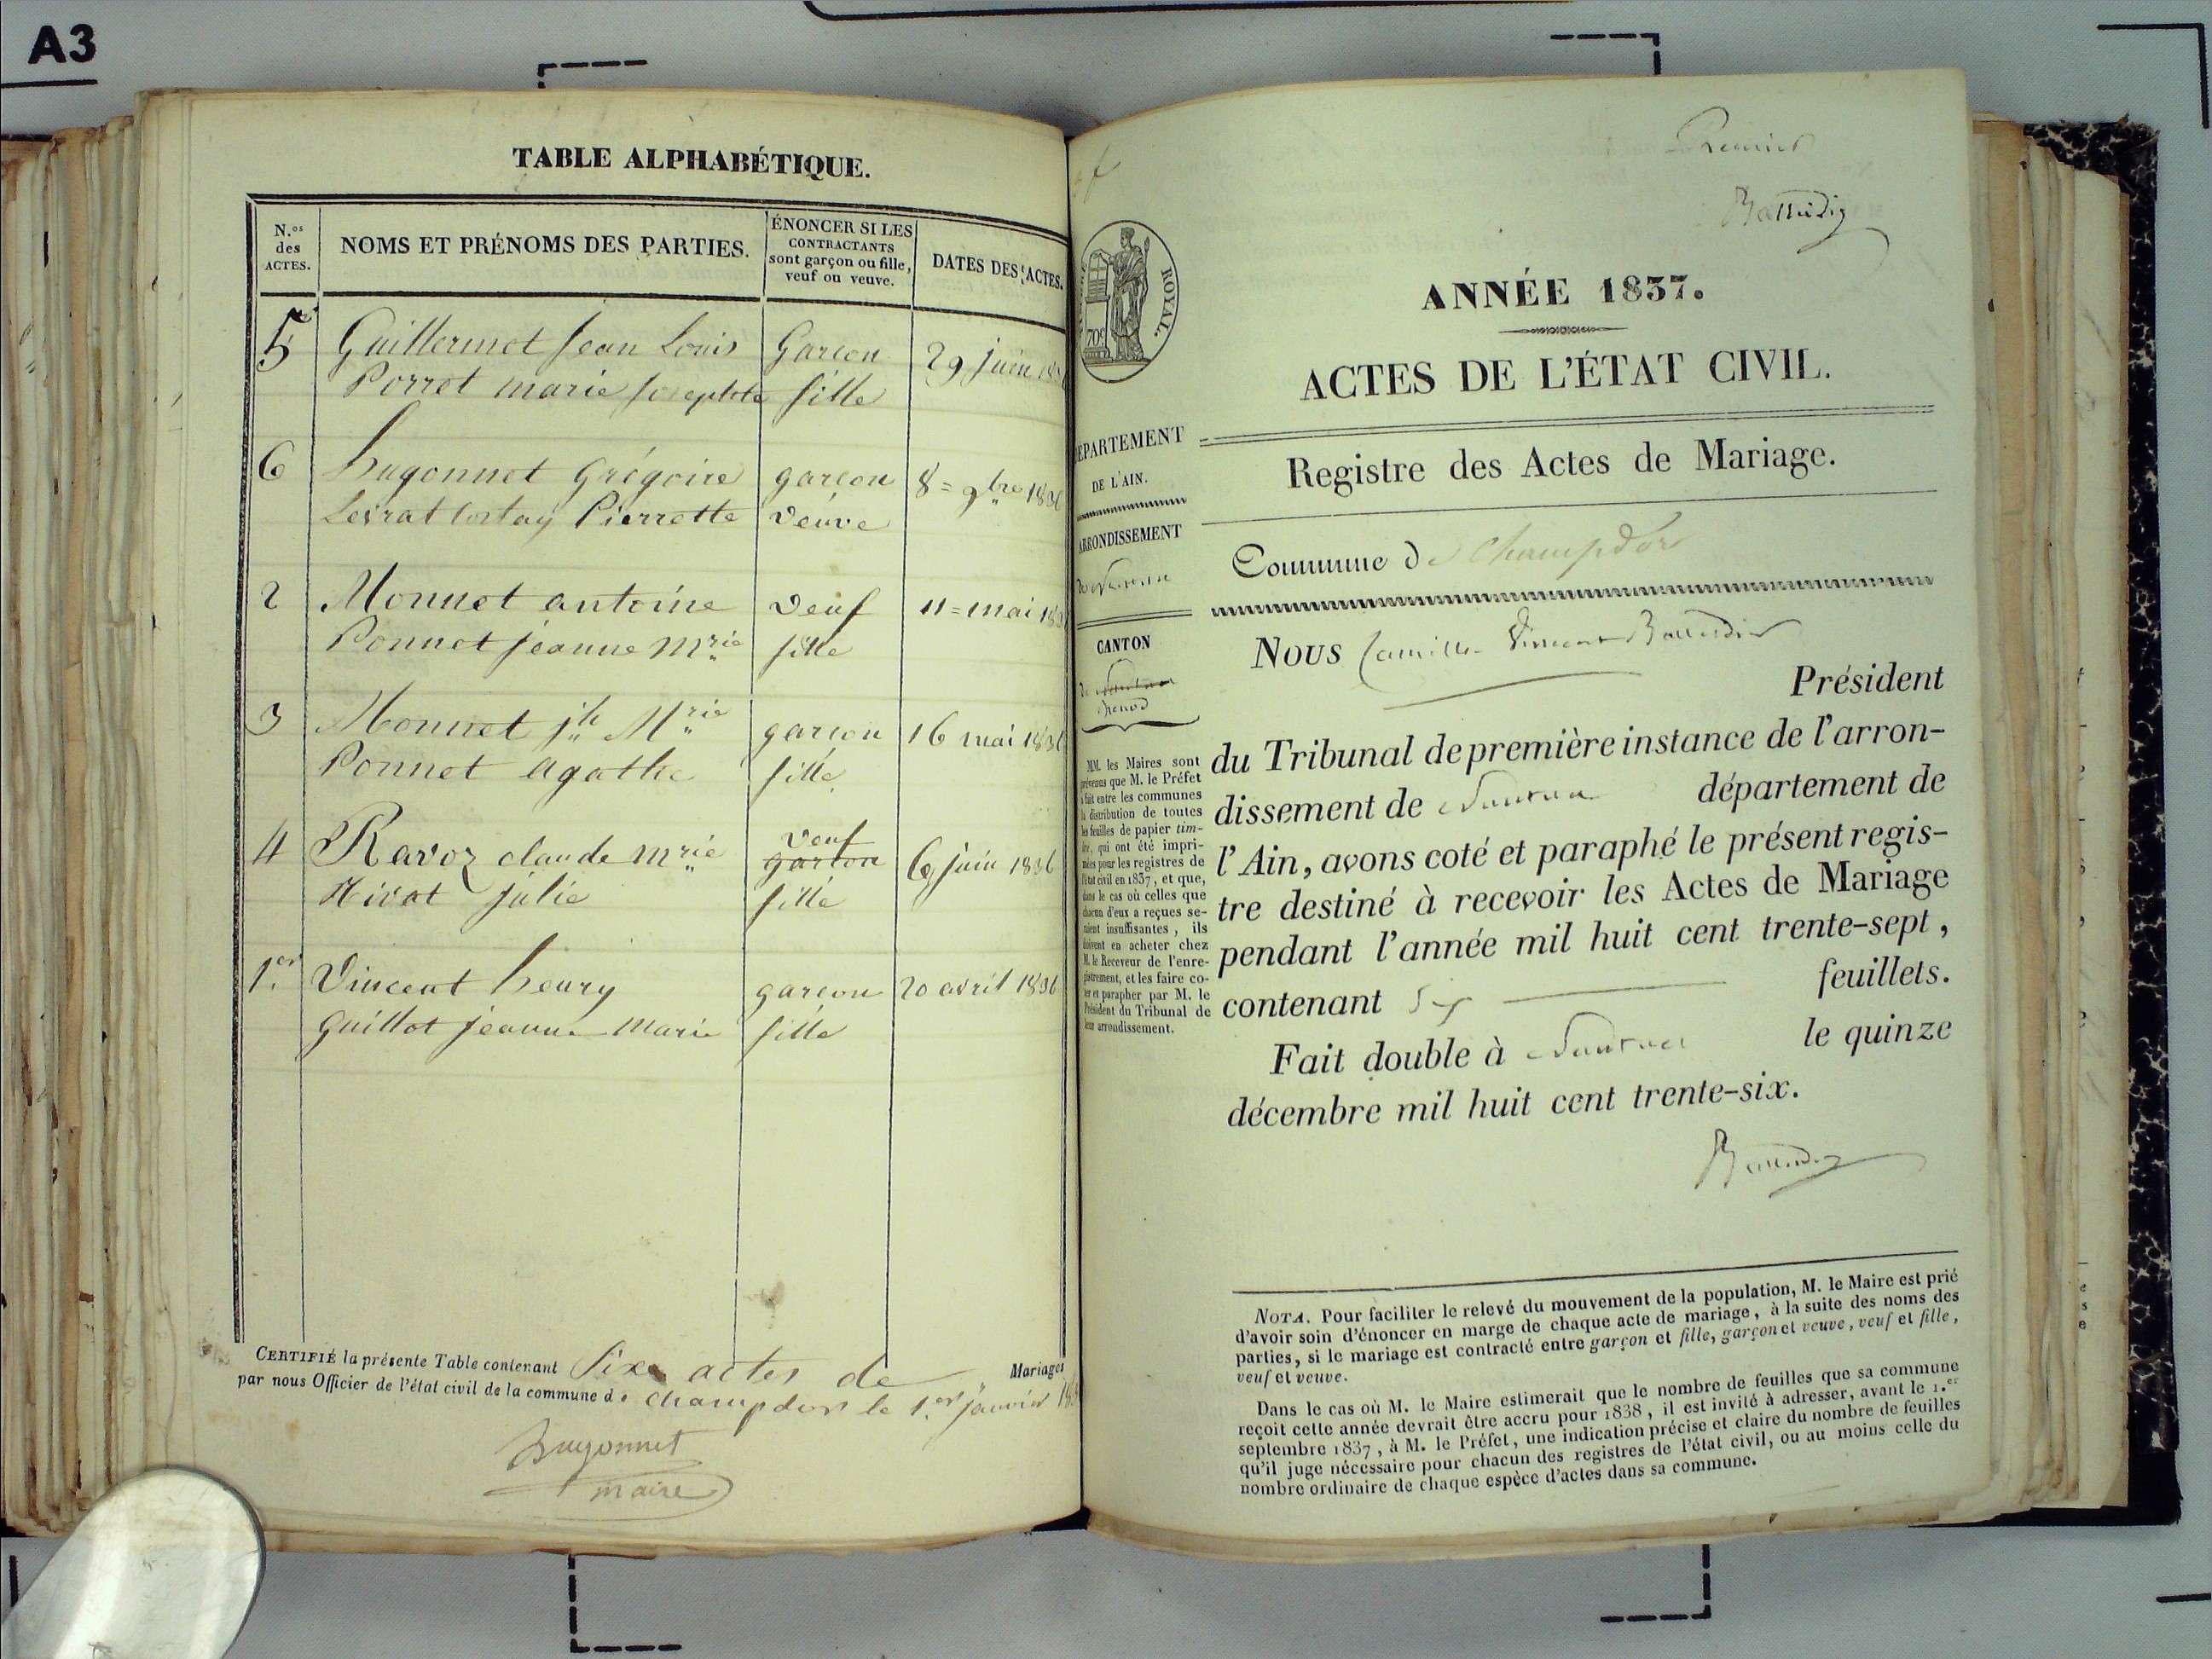 A3
TABLE ALPHABÉTIQUE.
N.os des ACTES.
NOMS ET PRÉNOMS DES PARTIES.
ÉNONCER SI LES CONTRACTANTS sont garçon ou fille, veuf ou veuve.
DATES DES ACTES.
5 Guillermet Jean Louis Garcon 29 juin
Porret marie josephte fille
6 hugonnet Grégoire garcon 8 = 9bre 1836
Levrat Pierrette veuve
2 Monnet antoine veuf 11 = mai
Ponnet jeanne Mrie fille
3 Monnet jh Mrie garcon 16 mai 1836
Ponnet agathe fille
4 Ravoz claude mrie veuf garcon 6 juin 1836
Nivat julie fille
1.er Vincent henry garcon 20 avril 1836
Guillot jeanne Marie fille
CERTIFIÉ la présente Table contenant Six actes de Mariages
par nous Officier de l'état civil de la commune de Champdor le 1.er janvier
hugonnet
maire
Premier
ROYAL.
ANNÉE 1837.
ACTES DE L'ÉTAT CIVIL.
DÉPARTEMENT
DE L'AIN.
ARRONDISSEMENT
de Nantua
CANTON
Registre des Actes de Mariage.
Commune de Champdor
Nous Camille Vincent
Président
du Tribunal de première instance de l'arron-
dissement de Nantua département de
l'Ain, avons coté et paraphé le présent regis-
tre destiné à recevoir les Actes de Mariage
pendant l'année mil huit cent trente-sept,
contenant Six feuillets.
Fait double à Nantua le quinze
décembre mil huit cent trente-six.
MM. les Maires sont
prévenus que M. le Préfet
a fait entre les communes
la distribution de toutes
les feuilles de papier tim-
bré, qui ont été impri-
mées pour les registres de
l'état civil en 1837, et que,
dans le cas où celles que
chacun d'eux a reçues se-
raient insuffisantes, ils
doivent en acheter chez
M. le Receveur de l'enre-
gistrement, et les faire co-
ter et parapher par M. le
Président du Tribunal de
leur arrondissement.
NOTA. Pour faciliter le relevé du mouvement de la population, M. le Maire est prié
d'avoir soin d'énoncer en marge de chaque acte de mariage, à la suite des noms des
parties, si le mariage est contracté entre garçon et fille, garçon et veuve, veuf et fille,
veuf et veuve.
Dans le cas où M. le Maire estimerait que le nombre de feuilles que sa commune
reçoit cette année devrait être accru pour 1838, il est invité à adresser, avant le 1.er
septembre 1837, à M. le Préfet, une indication précise et claire du nombre de feuilles
qu'il juge nécessaire pour chacun des registres de l'état civil, ou au moins celle du
nombre ordinaire de chaque espèce d'actes dans sa commune.